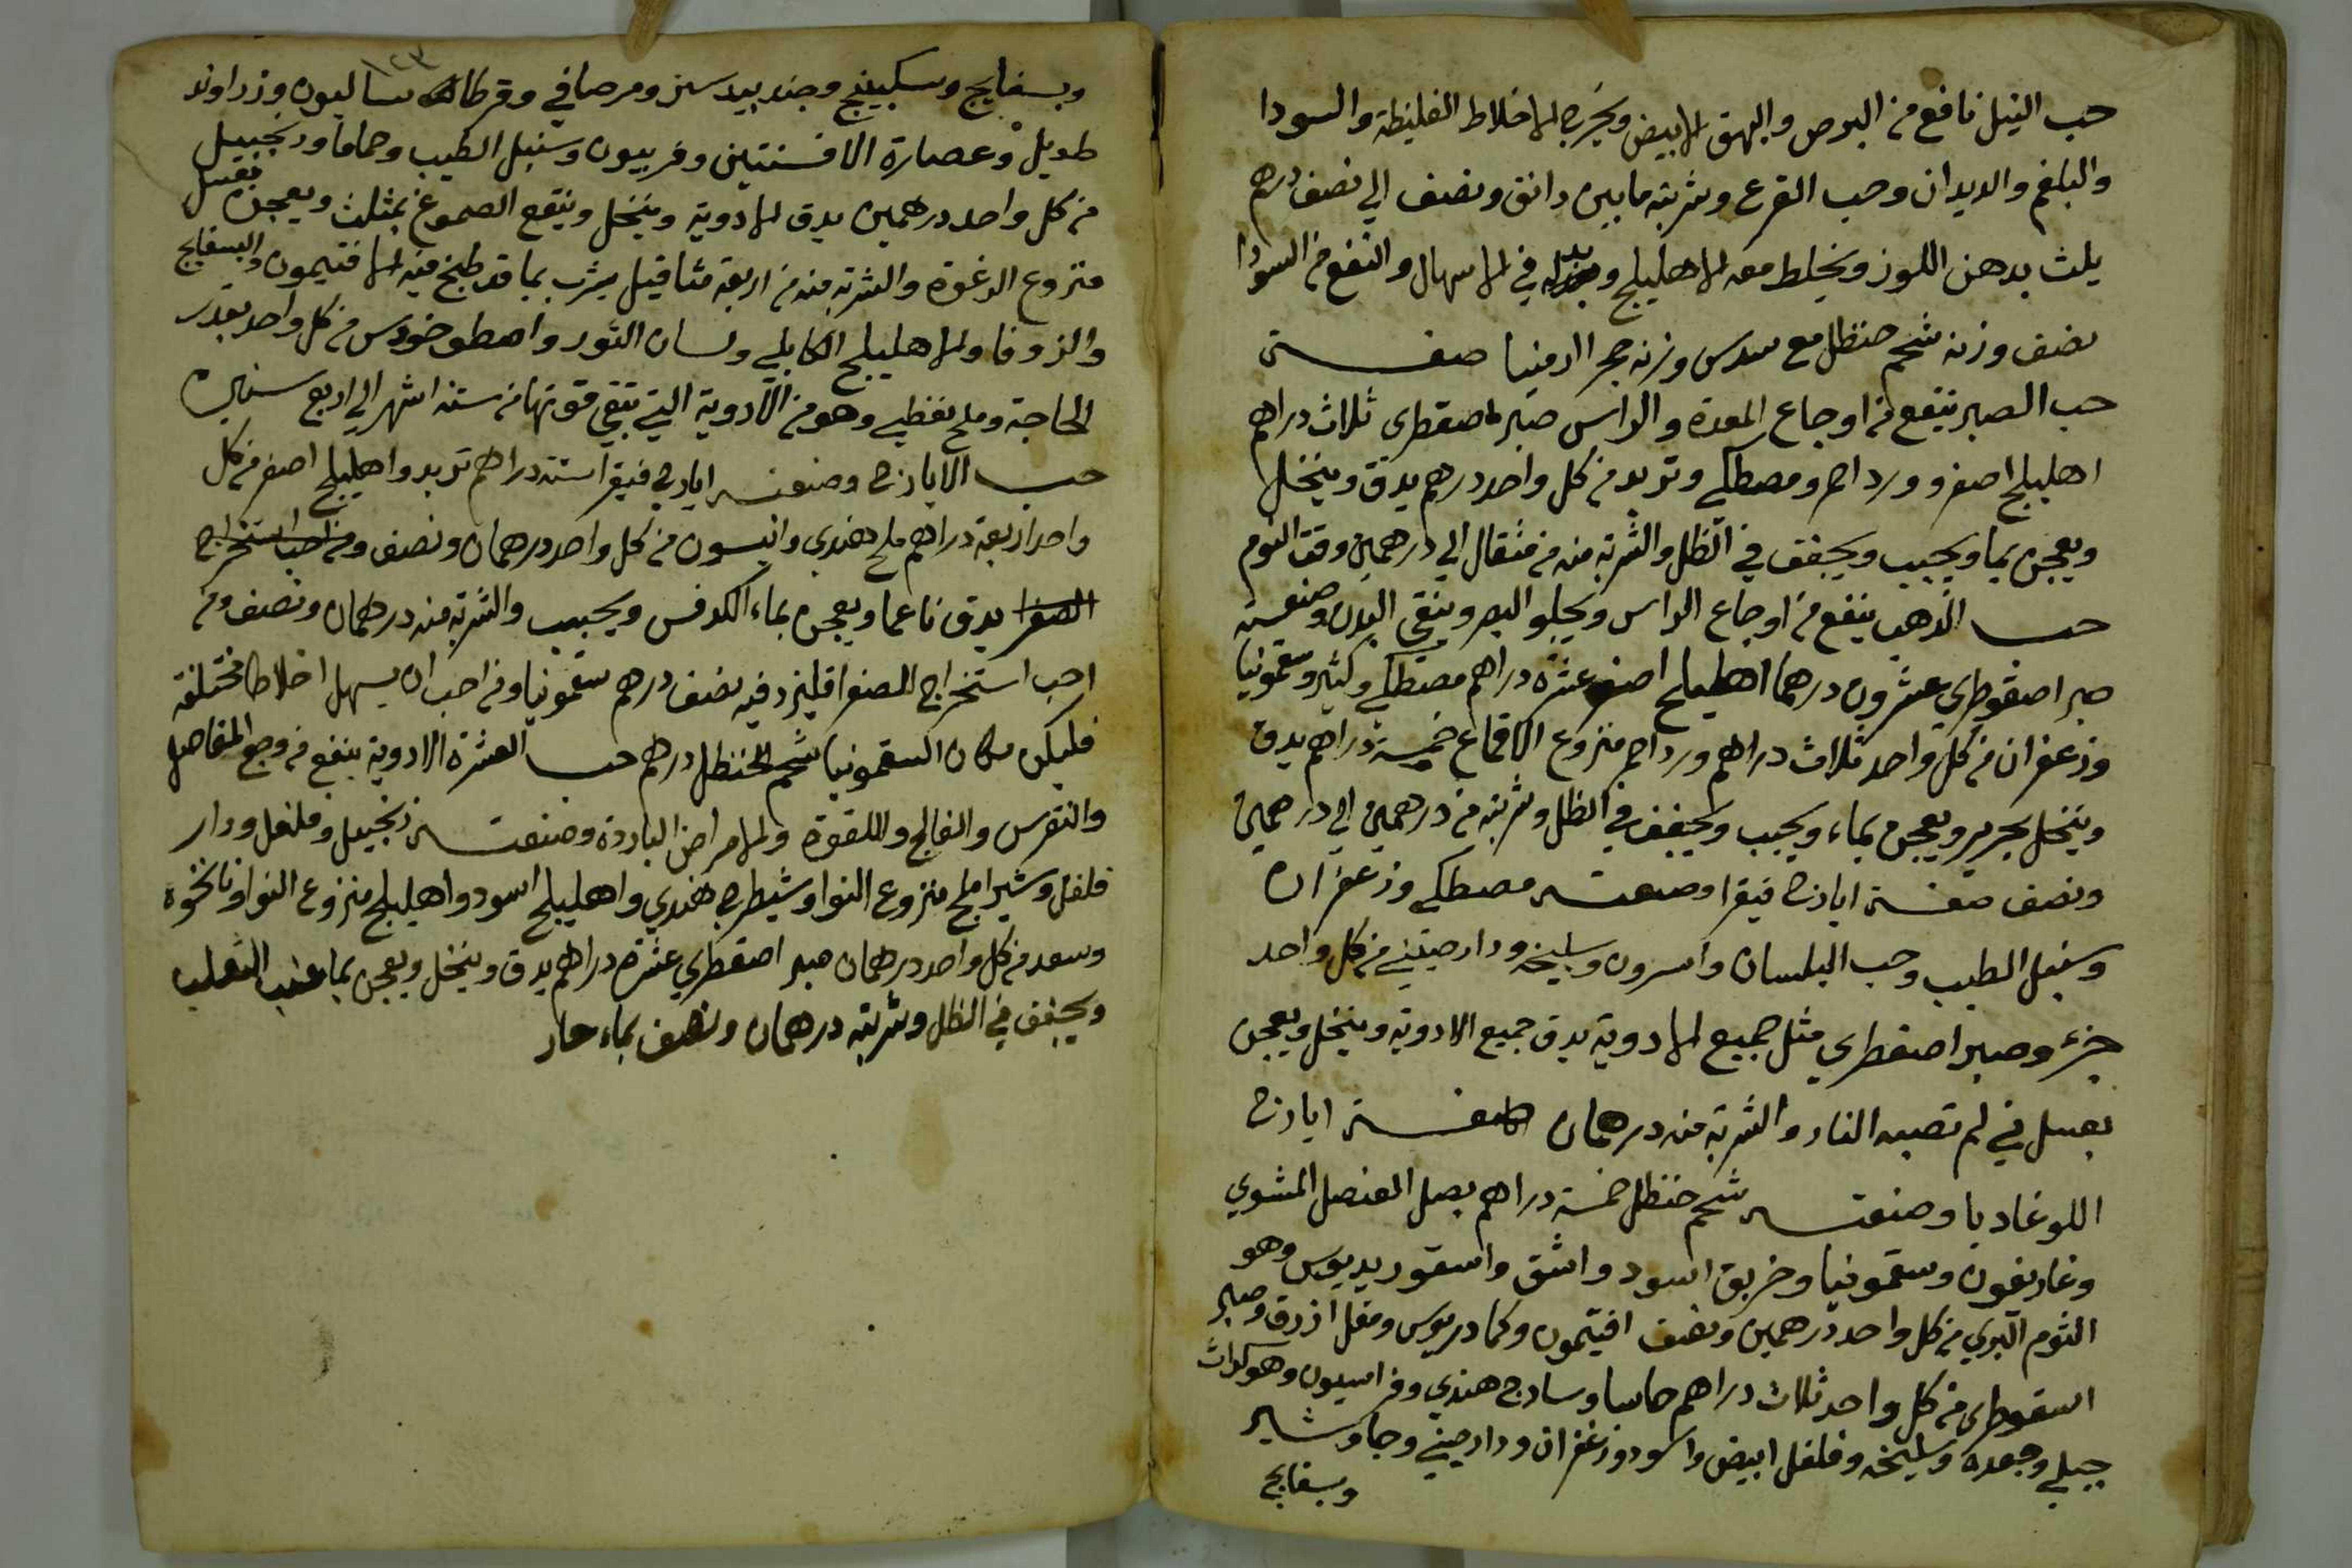 حب النيل نافع من البرص والبهق الابيض ويخرج الاخلاط الغليظة والسودا
والبلغم والديدان وحب القرع وشربته مابين دانق ونصف الي نصف درهم
يلث بدهن اللوز ويخلط معه الاهليلج في الاسهال والنفع من السودا
نصف وزنه شحم حنظل مع سدس وزنه حجر ارمنيا صفـــة
حب الصبر ينفع من اوجاع المعدة والراس صبر اصقطرى ثلاث دراهم
اهليلج اصفر وورد احمر ومصطكي وتربد من كل واحد درهم يدق وينخل
ويعجن بما ويحبب ويجفف في الظل والشربة منه من مثقال الي درهمين وقت النوم
حب الذهب ينفع من اوجاع الراس ويجلو البصر وينقي البدن وصنعته
صبر اصقوطري عشرون درهما اهليلج اصفر عشره دراهم مصطكي وكثيرا وسقمونيا
وزعفران من كل واحد ثلاث دراهم ورد احمر منزوع الاقماع خمسة دراهم يدق
وينخل بحرير ويعجن بماء ويحبب ويجفف في الظل وشربته من درهمين الي درهمين
ونصف صفـــة ايارج فيقرا وصنعتـــه مصطكي وزعفران
وسنبل الطيب وحب البلسان واسرون وسليخه ودارصيني من كل واحد
جزء وصبر اصقطري مثل جميع الادوية يدق جميع الادوية وينخل ويعجن
بعسل ني لم تصبه النار والشربة منه درهمان صفـــة ايارج
اللوغاديا وصنعتـــه شحم حنظل خمسة دراهم بصل العنصل المشوي
وغاريقون وسقمونيا وخربق اسود واشق واسقورديوس وهو
الثوم البري من كل واحد درهمين ونصف افيتمون وكمادريوس ومقل ازرق وصبر
اسقوطرى من كل واحد ثلاث دراهم حاسا وسادج هندي وفراسيون وهو كراث
جبلي وجعده وسليخه وفلفل ابيض واسود وزعفران ودارصيني وجاوشير
وبسفايج
١٢٣
وبسفايج وسكبينج وجندبيدستر ومرصافي وقرطاساليون وزراوند
طويل وعصارة الافسنتين وفربيون وسنبل الطيب وحماما وزنجبيل
من كل واحد درهمين يدق الادوية وينخل وينقع الصموغ بمثلث ويعجن بعسل
منزوع الرغوة والشربة منه من اربعة مثاقيل يشرب بما قد طبخ فيه الافتيمون والبسفايج
والزوفا والاهليلج الكابلي ولسان الثور واسطوخودس من كل واحد بقدر
الحاجة وملح نفطي وهو من الادوية التي تبقي قوتها من ستة اشهر الي اربع سنين
حب الايارج وصنعتـــه ايارج فيقرا ستة دراهم تربد واهليلج اصفر من كل
واحد اربعة دراهم ملح هندي وانيسون من كل واحد درهمان ونصف ومن احب استخراج
الصفرا يدق ناعما ويعجن بماء الكرفس ويحبب والشربة منه درهمان ونصف ومن
احب استخراج الصفرا فليزد فيه نصف درهم سقمونيا ومن احب ان يسهل اخلاطا مختلفة
فليكن مكان السقمونيا شحم الحنظل درهم حب العشرة الادوية ينفع من وجع المفاصل
والنقرس والفالج واللقوة والامراض الباردة وصنعتـــه زنجبيل وفلفل ودار
فلفل وشيراملج منزوع النوا وشيطرج هندي واهليلج اسود واهليلج منزوع النوا ونانخوة
وسعد من كل واحد درهمان صبر اصقطري عشرة دراهم يدق وينخل ويعجن بما عنب الثعلب
ويجفف في الظل وشربته درهمان ونصف بماء حار